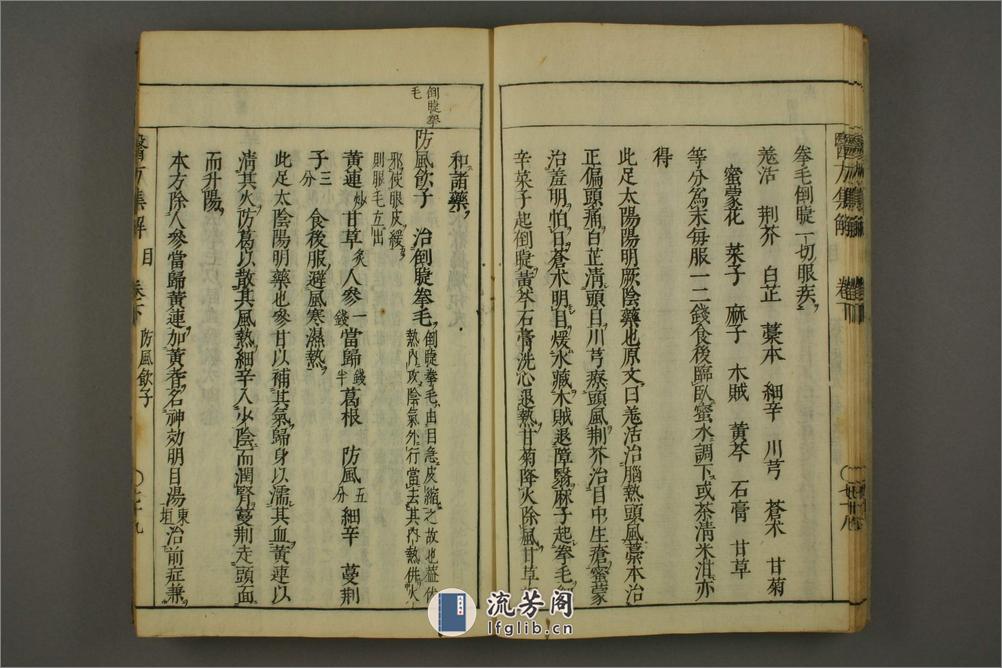 醫方集解 卷下
拳毛倒睫一切眼疾
羗活 荆芥 白芷 藁本 細辛 川芎 蒼术 甘菊
蜜蒙花 菜子 麻子 木賊 黄芩 石膏 甘草
等分爲末每服一二錢食後臨臥蜜水調下或茶清米泔亦
得
此足太陽陽明厥陰藥也原文曰羗活治腦熱頭風藁本治
正偏頭痛白芷清頭目川芎療頭風荆芥治目中生瘡蜜蒙
治羞明怕日蒼术明目煖水藏木賊退障翳麻子起拳毛
辛菜子起倒睫黄芩石膏洗心退熱甘菊降火除風甘草
和諸藥
倒睫拳
毛
防風飲子 治倒睫拳毛 倒睫拳毛由目急皮縮之故也葢伏
熱内攻陰氣外行當去其内熱併火
邪使眼皮緩
則眼毛立出
黄連炒甘草炙人參一錢當歸錢半葛根 防風五分細辛 蔓荆
子三分 食後服避風寒濕熱
此足太陰陽明藥也參甘以補其氣歸身以濡其血黄連以
清其火防葛以散其風熱細辛入少陰而潤腎蔓荆走頭面
而升陽
本方除人參當歸黄連加黄耆名神効明目湯東垣治前症兼
醫方集解 目 卷下 防風飲子
流芳阁
lfglib.cn